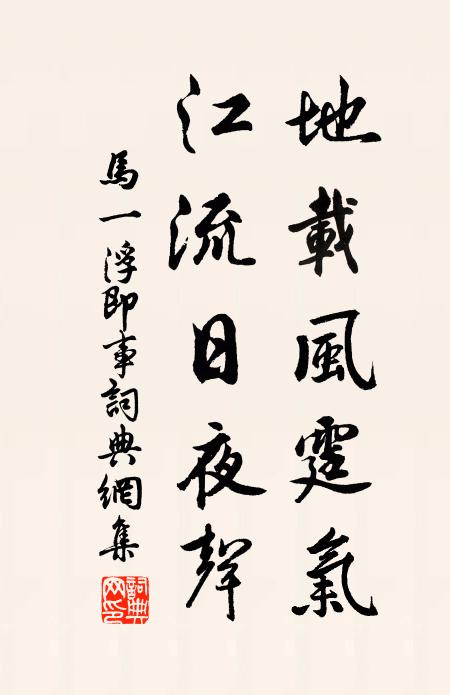 地載風霆氣
江流日夜聲
馬一浮即事詞典網集
詞典網印